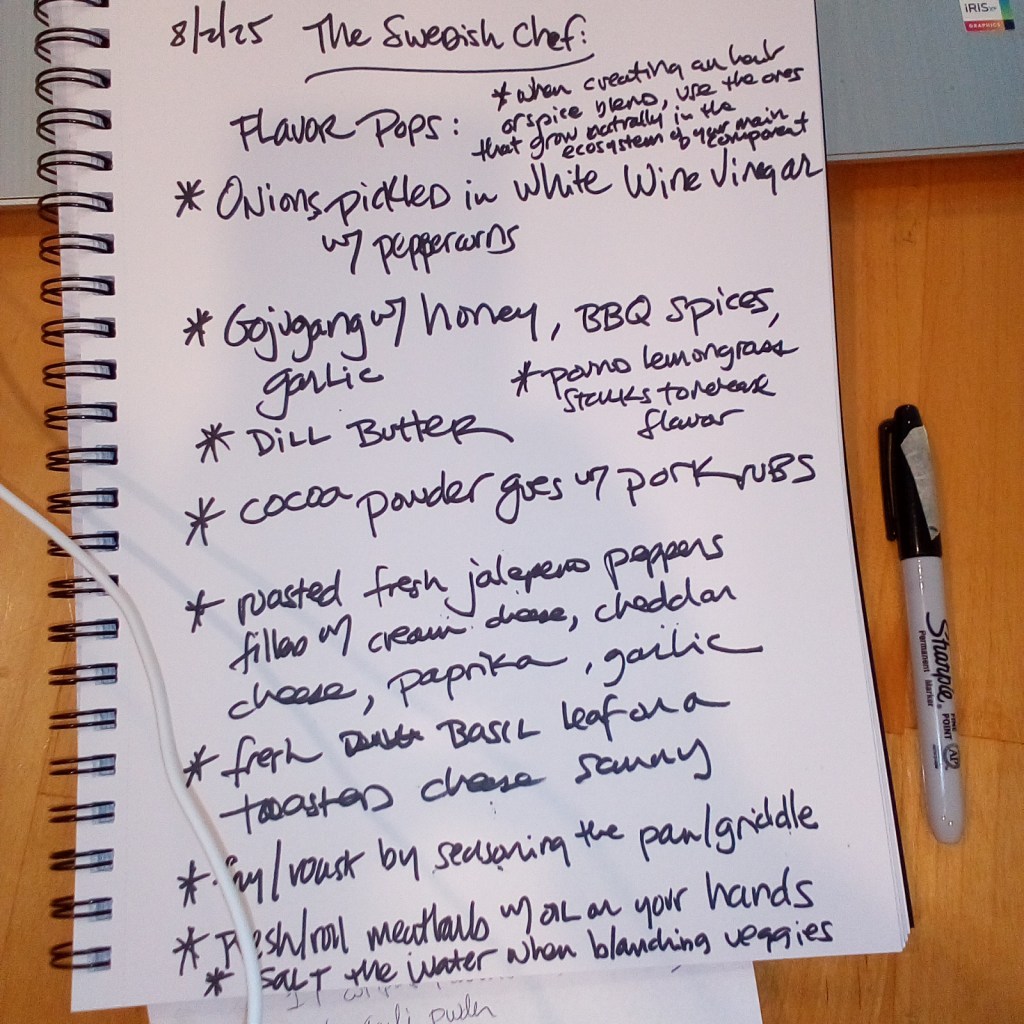 8/2/25 The Swedish Chef:
Flavor Pops:
* when creating an herb
or spice blend, use the ones
that grow natrally in the
ecosystem of your main
component
* Onions pickled in white wine vinegar
w/ peppercorns
* Gojugang w/ honey, BBQ spices,
garlic
* pound lemongrass
stalks to release
flavor
* Dill Butter
* cocoa powder goes w/ pork rubs
* roasted fresh jalepeno peppers
filled w/ cream cheese, cheddar
cheese, paprika, garlic
* fresh Basil leaf on a
toasted cheese sammy
* fry/roast by seasoning the pan/griddle
* press/roll meatballs w/ oil on your hands
* SALT the water when blanching veggies
powder
iRIS XP
GRAPHICS
Sharpie
Permanent Marker
FINE
POINT
AP